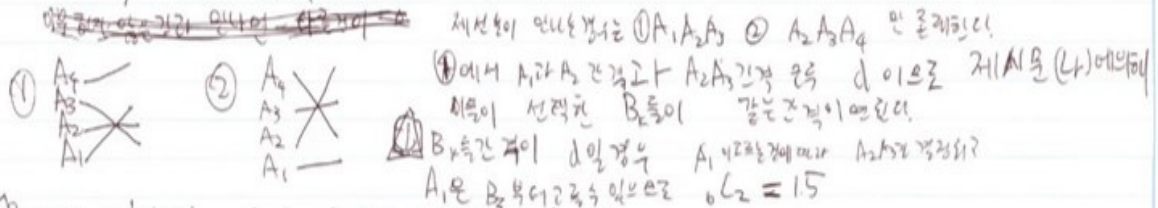 세선분이 만나는경우는 ①A₁A₂A₃ ② A₂A₃A₄ 만 존재한다.
① A₄ A₃ A₂ A₁
② A₄ A₃ A₂ A₁
①에서 A₁과 A₂ 간격과 A₂A₃간격 모두 d 이므로 제시문 (나)에의해
이들이 선택한 Bₖ들이 같은간격이면된다.
① Bₖ측간격이 d일경우 A₁ A₂A₃도 결정되고
A₁은 B₃부터고를수 있으므로 ₆C₂ = 15